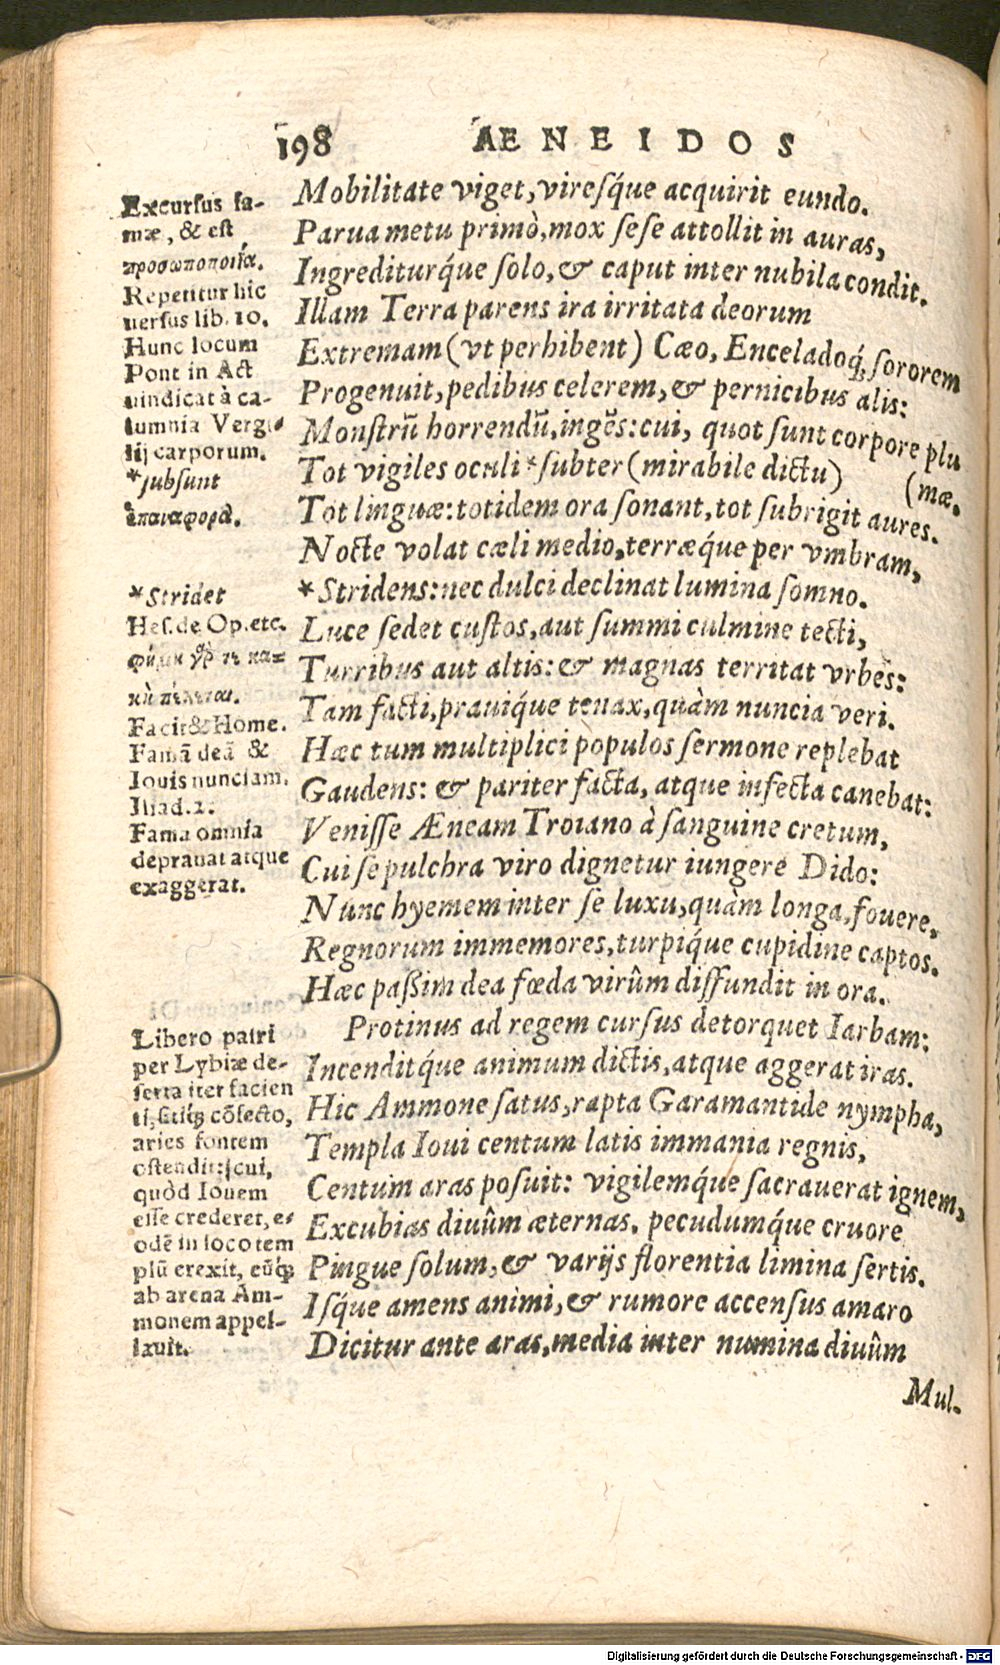 198 AENEIDOS
Mobilitate viget, viresq́ue acquirit eundo.
Parua metu primò, mox sese attollit in auras,
Ingrediturq́ue solo, & caput inter nubila condit.
Illam Terra parens ira irritata deorum
Extremam (vt perhibent) Cæo, Enceladoq́; sororem
Progenuit, pedibus celerem, & pernicibus alis:
Monstrũ horrendũ, ingẽs: cui, quot sunt corpore plu
Tot vigiles oculi *subter (mirabile dictu) (mæ,
Tot linguæ: totidem ora sonant, tot subrigit aures.
Nocte volat cæli medio, terræq́ue per vmbram,
*Stridens: nec dulci declinat lumina somno.
Luce sedet custos, aut summi culmine tecti,
Turribus aut altis: & magnas territat vrbes:
Tam facti, prauiq́ue tenax, quàm nuncia veri.
Hæc tum multiplici populos sermone replebat
Gaudens: & pariter facta, atque infecta canebat:
Venisse Æneam Troiano à sanguine cretum,
Cui se pulchra viro dignetur iungere Dido:
Nunc hyemem inter se luxu, quàm longa, fouere,
Regnorum immemores, turpiq́ue cupidine captos.
Hæc paßim dea fœda virûm diffundit in ora.
Protinus ad regem cursus detorquet Iarbam:
Incenditq́ue animum dictis, atque aggerat iras.
Hic Ammone satus, rapta Garamantide nympha,
Templa Ioui centum latis immania regnis,
Centum aras posuit: vigilemq́ue sacrauerat ignem,
Excubias diuûm æternas. pecudumq́ue cruore
Pingue solum, & varijs florentia limina sertis.
Isq́ue amens animi, & rumore accensus amaro
Dicitur ante aras, media inter numina diuûm
Mul-
Excursus fa-
mæ, & est
προσωποποιΐα.
Repetitur hic
uersus lib. 10.
Hunc locum
Pont in Act
uindicat à ca-
lumnia Vergi-
lij carporum.
*subsunt
ἐπαναφορὰ.
*Stridet
Hes. de Op. etc.
φήμη γάρ τε κα-
κὴ πέλεται.
Facit & Home.
Famã deã &
Iouis nunciam.
Iliad. 2.
Fama omnia
deprauat atque
exaggerat.
Libero patri
per Lybiæ de-
serta iter facien
ti, sitiq́; cõfecto,
aries fontem
ostendit: cui,
quòd Iouem
esse crederet, e-
odẽ in loco tem
plũ erexit, eũq́;
ab arena Am-
monem appel-
lauit.
Digitalisierung gefördert durch die Deutsche Forschungsgemeinschaft - DFG